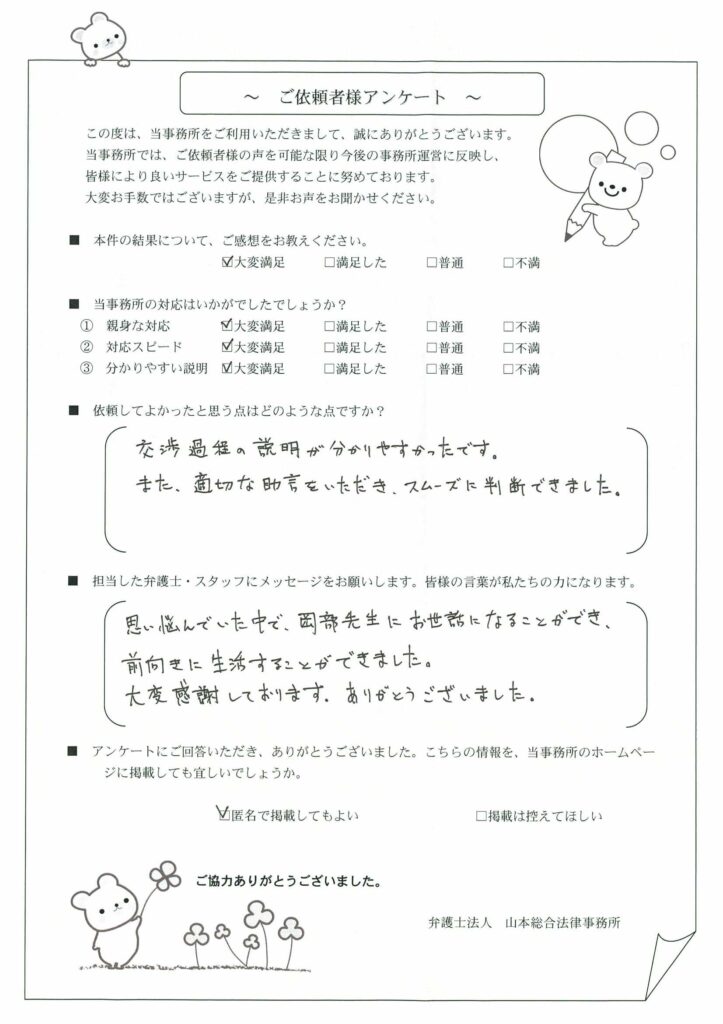 ～　ご依頼者様アンケート　～
この度は、当事務所をご利用いただきまして、誠にありがとうございます。
当事務所では、ご依頼者様の声を可能な限り今後の事務所運営に反映し、
皆様により良いサービスをご提供することに努めております。
大変お手数ではございますが、是非お声をお聞かせください。
■　本件の結果について、ご感想をお教えください。
☑大変満足　□満足した　□普通　□不満
■　当事務所の対応はいかがでしたでしょうか？
①　親身な対応　☑大変満足　□満足した　□普通　□不満
②　対応スピード　☑大変満足　□満足した　□普通　□不満
③　分かりやすい説明　☑大変満足　□満足した　□普通　□不満
■　依頼してよかったと思う点はどのような点ですか？
交渉過程の説明が分かりやすかったです。
また、適切な助言をいただき、スムーズに判断できました。
■　担当した弁護士・スタッフにメッセージをお願いします。皆様の言葉が私たちの力になります。
思い悩んでいた中で、岡部先生にお世話になることができ、
前向きに生活することができました。
大変感謝しております。ありがとうございました。
■　アンケートにご回答いただき、ありがとうございました。こちらの情報を、当事務所のホームペー
ジに掲載しても宜しいでしょうか。
☑匿名で掲載してもよい　□掲載は控えてほしい
ご協力ありがとうございました。
弁護士法人　山本総合法律事務所